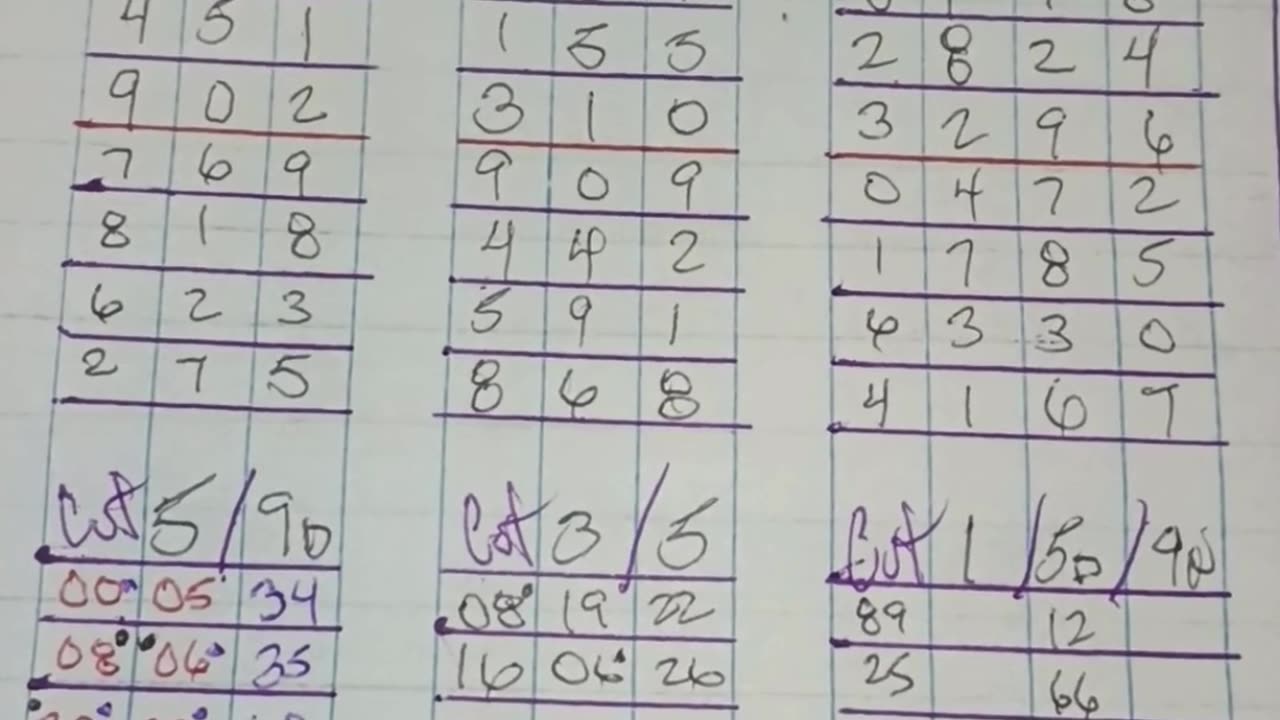 4 5 1
9 0 2
7 6 9
8 1 8
6 2 3
2 7 5
Cut 5/90
00 05 34
08 06 35
1 5 5
3 1 0
9 0 9
4 4 2
5 9 1
8 6 8
Cut 3/5
08 19 22
16 06 26
2 8 2 4
3 2 9 6
0 4 7 2
1 7 8 5
6 3 3 0
4 1 6 7
Cut 1/50/90
89 12
25 66